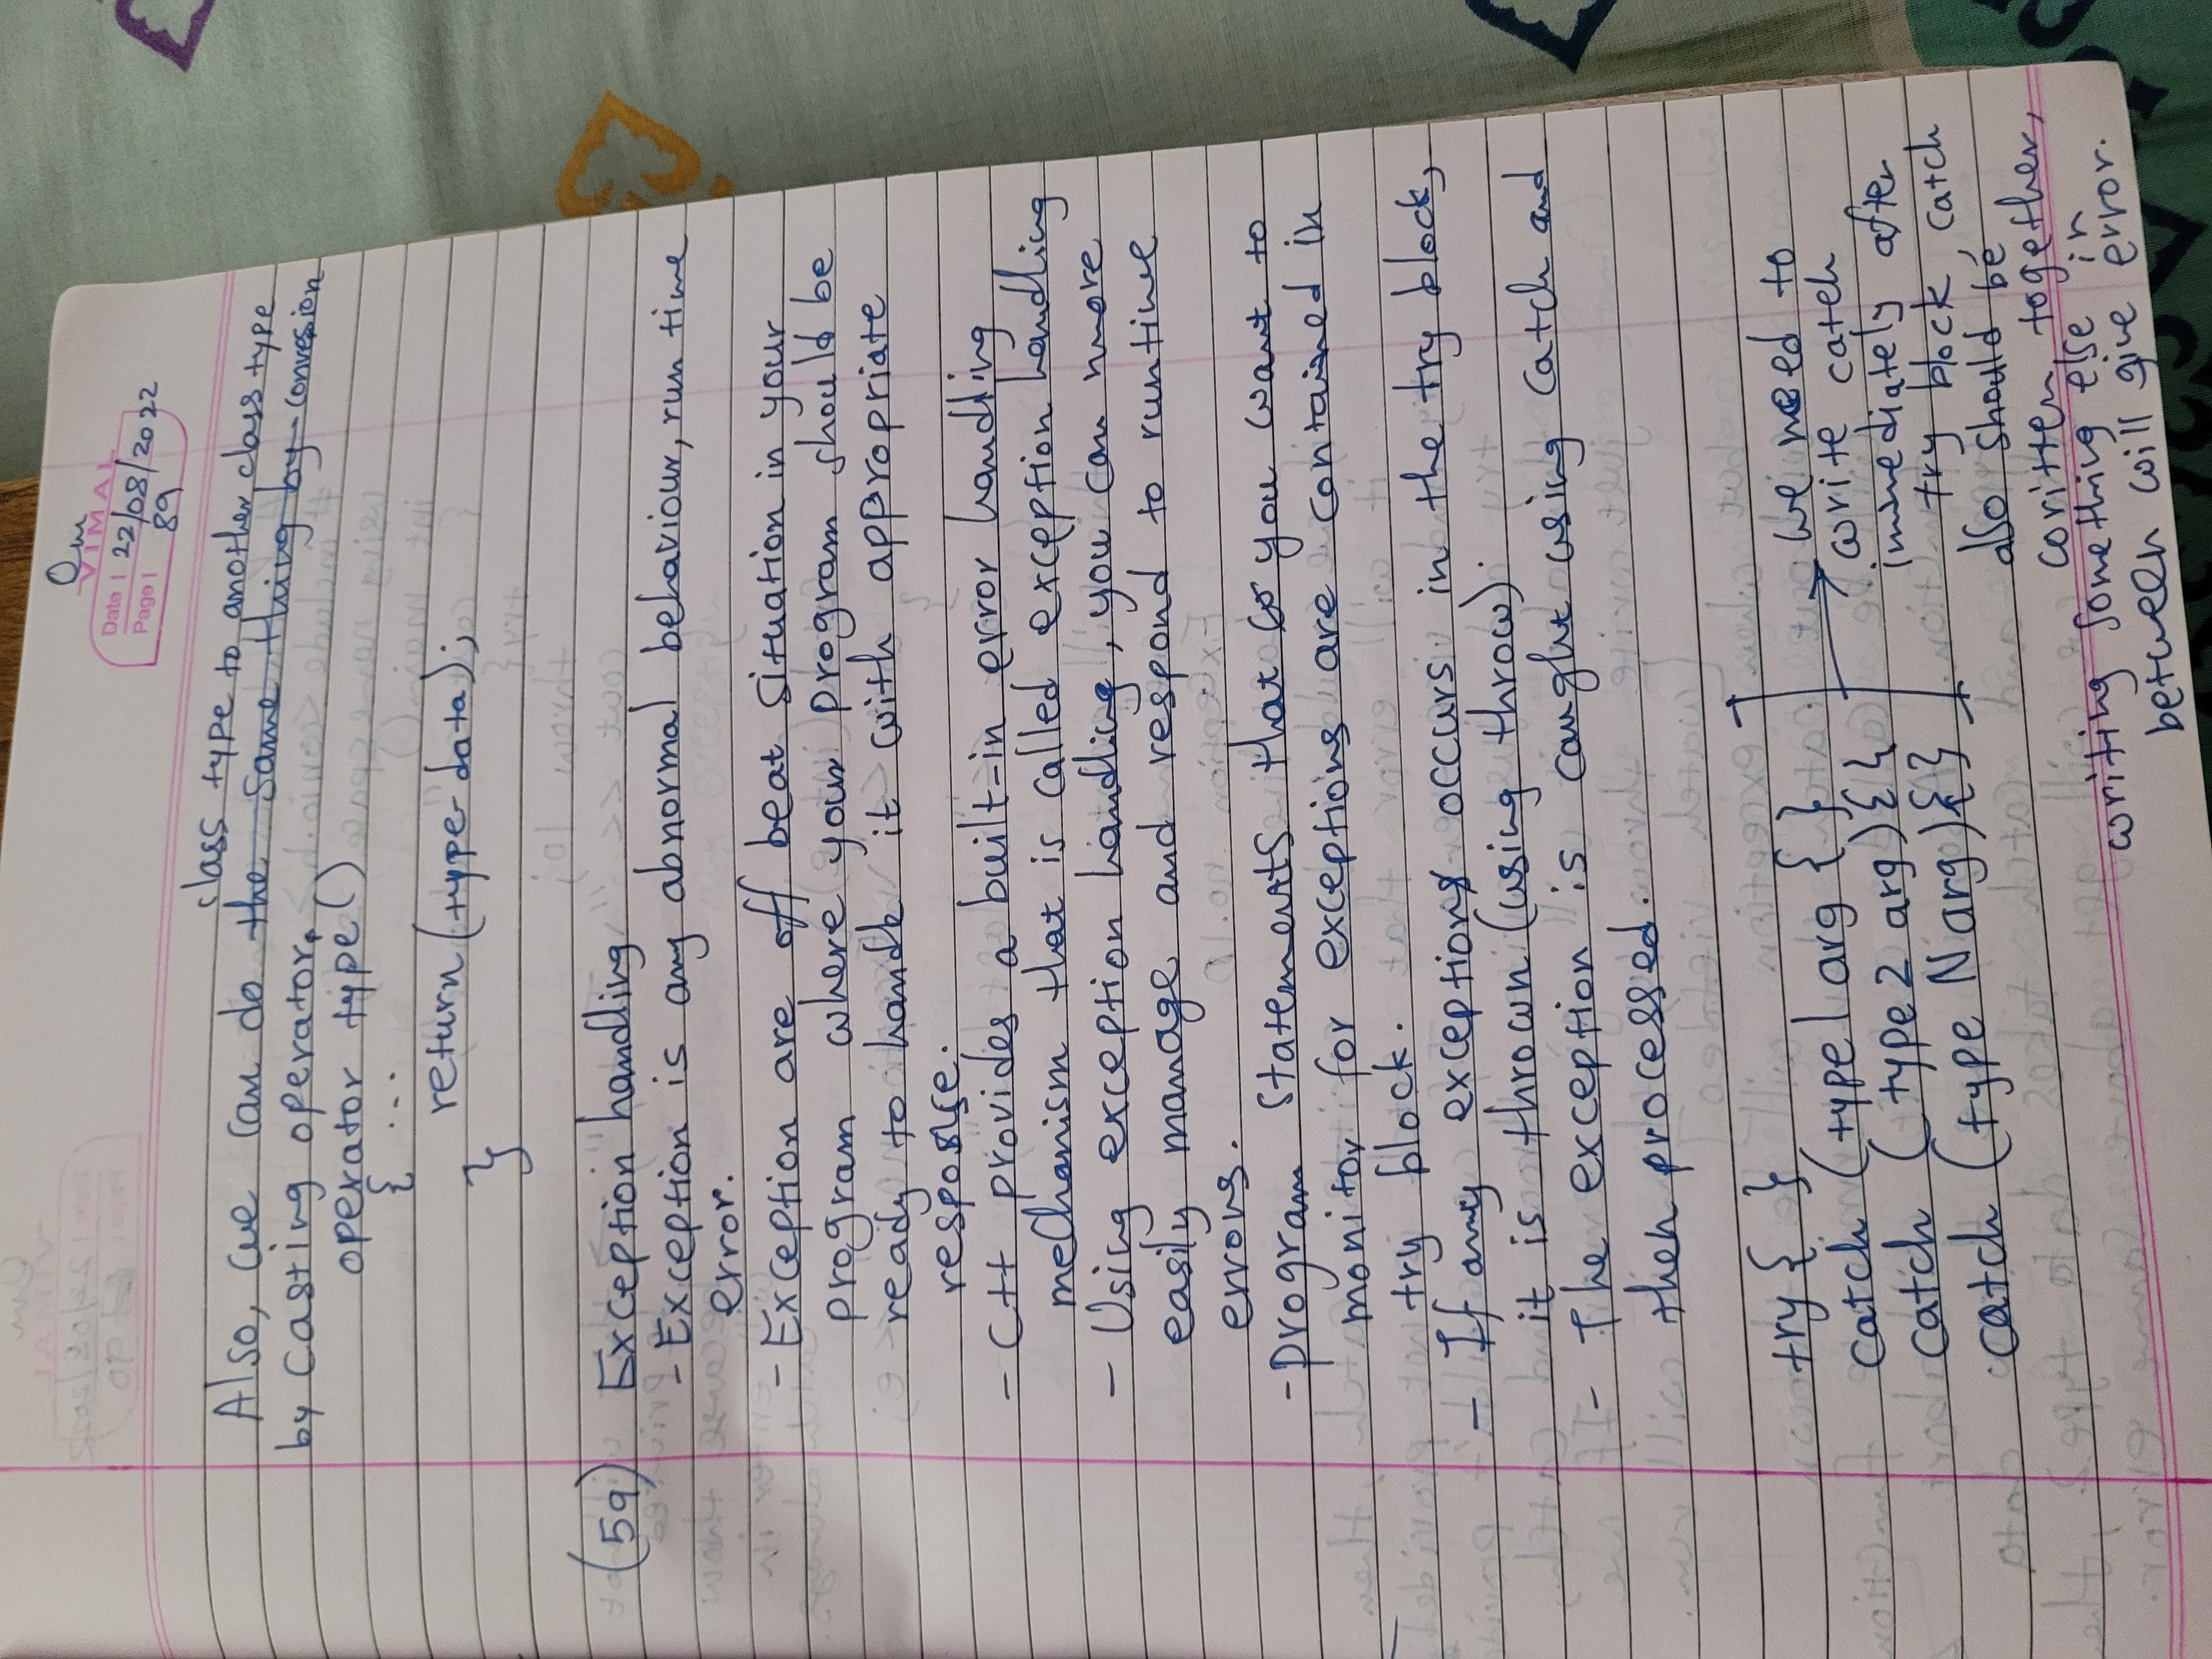 Om
VIMAL
Date | 22/08/2022
Page | 89
class type to another class type
Also, we can do the same thing by conversion
by casting operator.
operator type()
{ ...
return (type-data);
}
(59) Exception handling
- Exception is any abnormal behaviour, run time
error.
- Exception are off beat situation in your
program where your program should be
ready to handle it with appropriate
response.
- C++ provides a built-in error handling
mechanism that is called exception handling
- Using exception handling, you can more
easily manage and respond to runtime
errors.
- Program statements that you want to
monitor for exceptions are contained in
try block.
- If any exception occurs in the try block,
it is thrown (using throw).
- The exception is caught using catch and
then processed.
try { }
catch (type1 arg { }
catch (type2 arg){ {
catch (type N arg){ }
We need to
write catch
immediately after
try block, catch
also should be
written together,
writing something else in
between will give error.